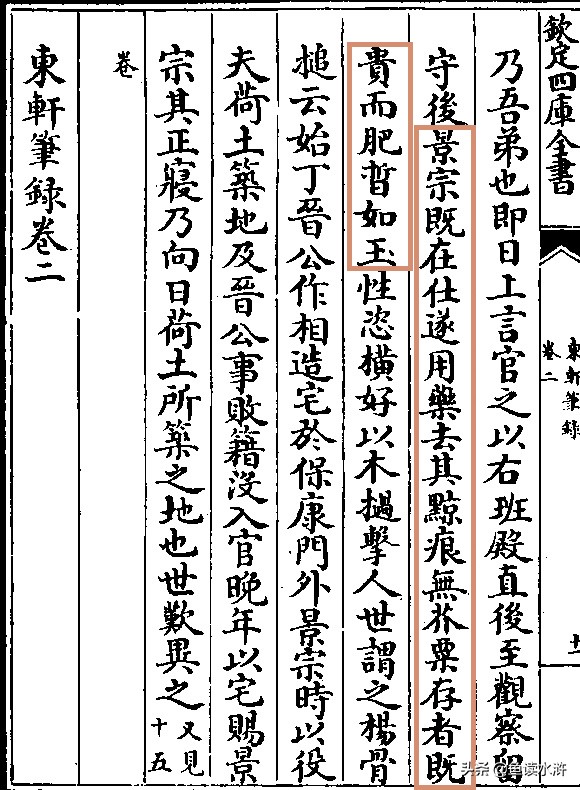 欽定四庫全書
東軒筆錄
卷二
乃吾弟也即日上言官之以右班殿直後至觀察留
守後景宗既在仕遂用藥去其黥痕無芥粟存者既
貴而肥晢如玉性恣橫好以木撾擊人世謂之楊骨
槌云始丁晉公作相造宅於保康門外景宗時以役
夫荷土築地及晉公事敗籍沒入官晚年以宅賜景
宗其正寢乃向日荷土所築之地也世歎異之又見
十五
卷
東軒筆錄卷二
头条 @读水浒